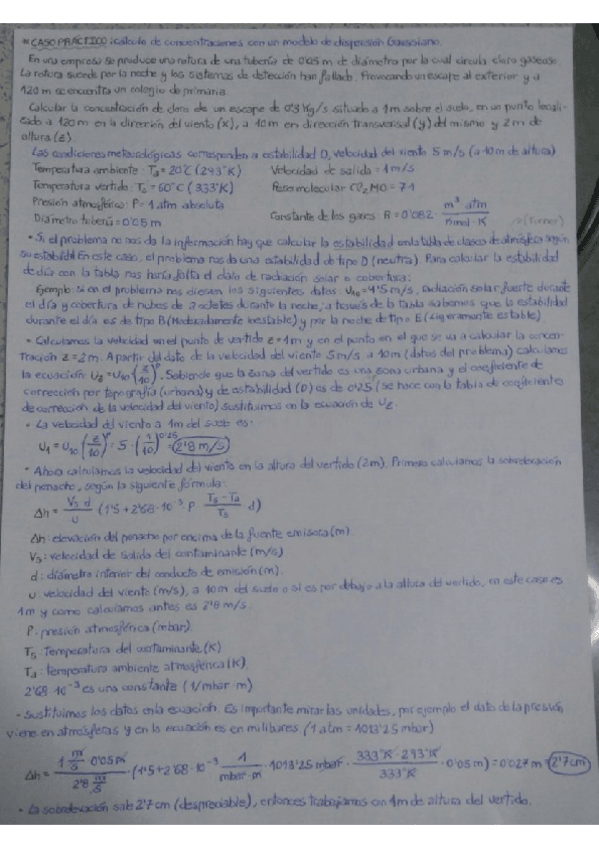 * CASO PRÁCTICO: cálculo de concentraciones con un modelo de dispersión Gaussiano.
En una empresa se produce una rotura de una tubería de 0'05 m de diámetro por la cual circula cloro gaseoso.
La rotura sucede por la noche y los sistemas de detección han fallado. Provocando un escape al exterior y a
120 m se encuentra un colegio de primaria.
Calcular la concentración de cloro de un escape de 0'3 Kg/s situado a 1m sobre el suelo, en un punto locali-
zado a 120 m en la dirección del viento (x), a 10m en dirección transversal (y) del mismo y 2m de
altura (z).
Las condiciones meteorológicas corresponden a estabilidad D, velocidad del viento 5 m/s (a 10m de altura)
Temperatura ambiente: Ta = 20°C (293°K) Velocidad de salida = 1m/s
Temperatura vertido: Ts = 60°C (333°K) Peso molecular = 71
Presión atmosférica: P = 1 atm absoluta
Diámetro tubería = 0'05 m Constante de los gases R = 0'082 · m³ atm / Kmol · K (Turner)
• Si el problema no nos da la información hay que calcular la estabilidad con la tabla de clases de atmósfera según
su estabilidad. En este caso, el problema nos da una estabilidad de tipo D (neutra). Para calcular la estabilidad
de día con la tabla nos haría falta el dato de radiación solar o cobertura:
Ejemplo: si en el problema nos diesen los siguientes datos U10 = 4'5 m/s, radiación solar fuerte durante
el día y cobertura de nubes de 3 octetes durante la noche; a través de la tabla sabemos que la estabilidad
durante el día es de tipo B (Moderadamente inestable) y por la noche de tipo E (Ligeramente estable)
• Calculamos la velocidad en el punto de vertido z = 1m y en el punto en el que se va a calcular la concen-
tración z = 2m. A partir del dato de la velocidad del viento 5 m/s a 10m (datos del problema) calculamos
la ecuación Uz = U10 (z/10)^p. Sabiendo que la zona del vertido es una zona urbana y el coeficiente de
corrección por topografía (urbana) y de estabilidad (D) es de 0'25 (se hace con la tabla de coeficientes
de corrección de la velocidad del viento) sustituimos en la ecuación de Uz
• La velocidad del viento a 1m del suelo es:
U1 = U10 (z/10)^p = 5 · (1/10)^0'25 = 2'8 m/s
• Ahora calculamos la velocidad del viento en la altura del vertido (2m). Primero calculamos la sobreelevación
del penacho, según la siguiente fórmula:
Δh = Vs · d / u (1'5 + 2'68 · 10⁻³ · P · Ts - Ta / Ts · d)
Δh: elevación del penacho por encima de la fuente emisora (m).
Vs: velocidad de salida del contaminante (m/s)
d: diámetro interior del conducto de emisión (m).
u: velocidad del viento (m/s), a 10m del suelo o si es por debajo a la altura del vertido, en este caso es
1m y como calculamos antes es 2'8 m/s.
P: presión atmosférica (mbar).
Ts: Temperatura del contaminante (K)
Ta: temperatura ambiente atmosférica (K).
2'68 · 10⁻³ es una constante (1/mbar · m)
- Sustituimos los datos en la ecuación. Es importante mirar las unidades, por ejemplo el dato de la presión
viene en atmósferas y en la ecuación es en milibares (1 atm = 1013'25 mbar)
Δh = 1 m/s · 0'05 m / 2'8 m/s · (1'5 + 2'68 · 10⁻³ 1 / mbar · m · 1013'25 mbar · 333°K - 293°K / 333°K · 0'05 m) = 0'027 m = 2'7 cm
• La sobreelevación sale 2'7 cm (despreciable), entonces trabajamos con 1m de altura del vertido.